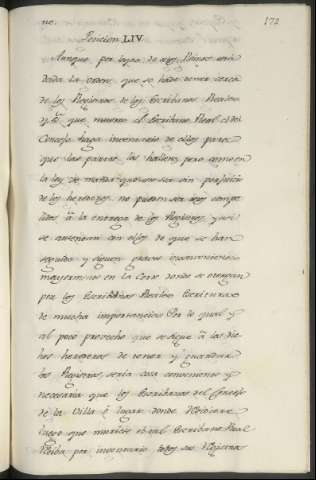 no.
172
Peticion LIV.
Aunque por leyes de estos Reinos está
dada la orden, que se ha de tener cerca
de los Registros de los Escribanos Reales
y que muerto el Escribano Real el del
Concejo haga inventario de ellos para
que las partes los hallen, pero como en
la ley se manda que sea sin perjuicio
de los herederos no pueden ser estos compe
lidos à la entrega de los Registros, y asi
se quedan con ellos de que se han
seguido y siguen graves inconvenientes
mayormente en la Corte donde se otorgan
por los Escribanos Reales Escrituras
de mucha importancia: Por lo qual y
el poco provecho que se sigue à los di
chos herederos de tener y guardar
los Registros, seria cosa conveniente y
necesaria que los Escribanos del Concejo
de la Villa ò lugar donde residiere
luego que muriese el tal Escribano Real
reciba por inventario todos sus Registros